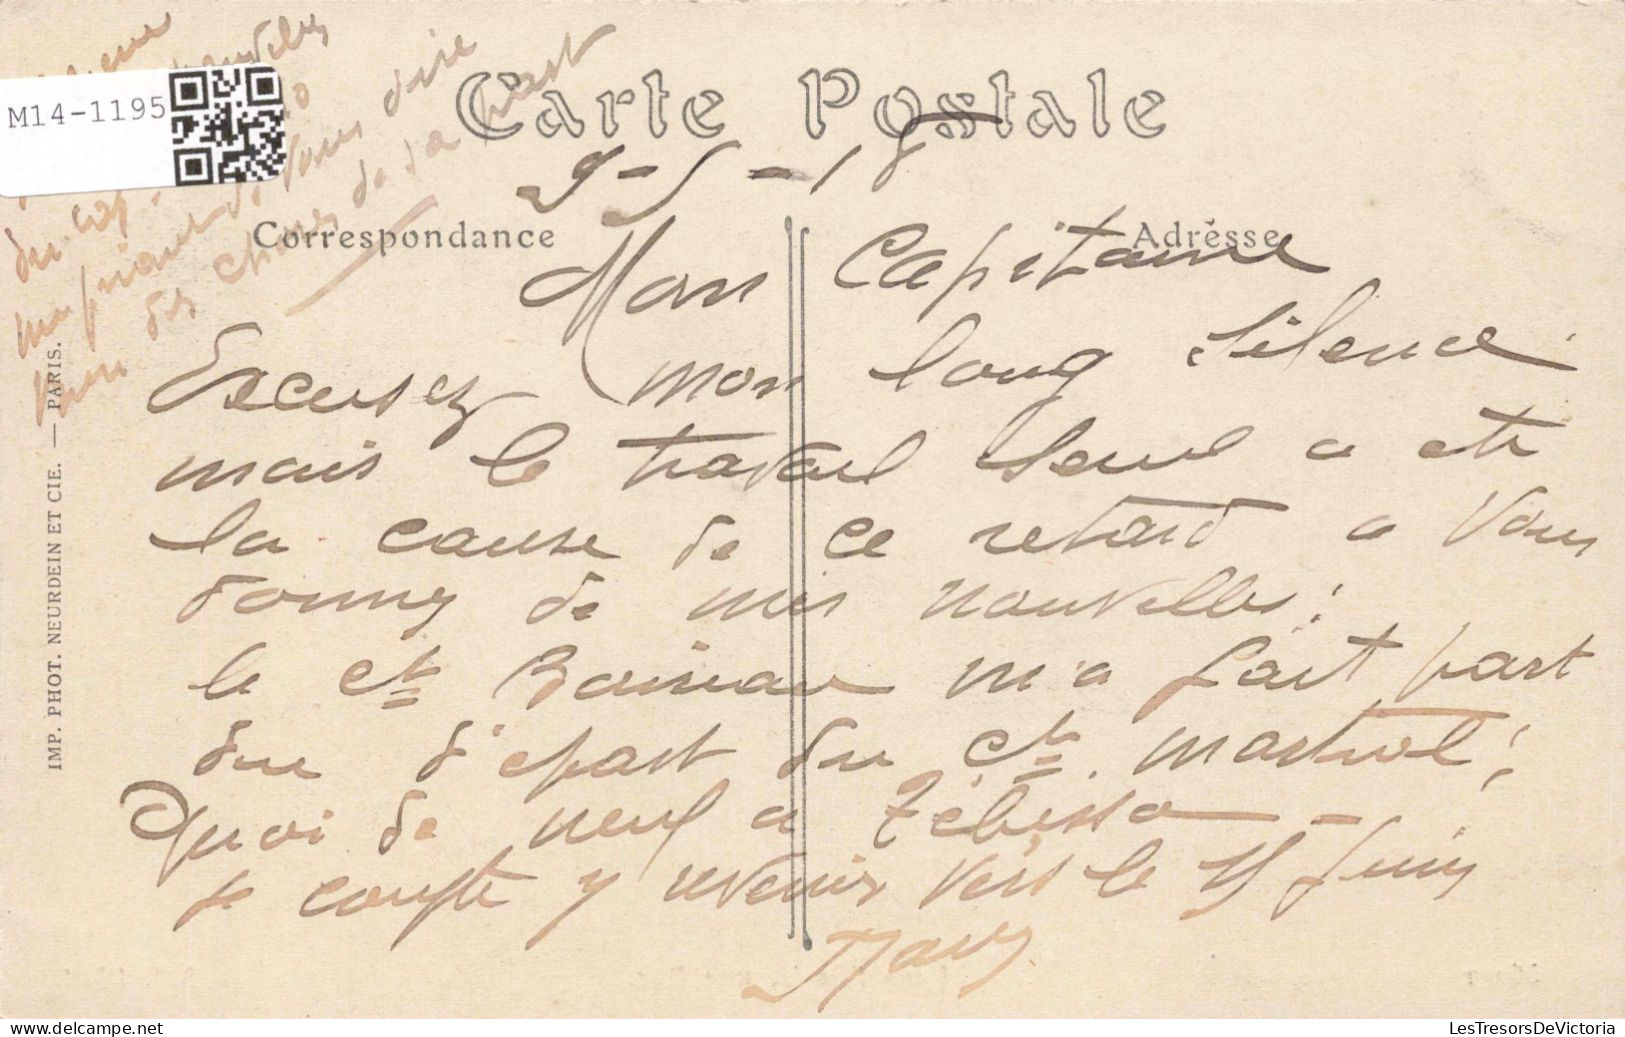 Carte Postale
M14-1195
9-5-18
Correspondance
Adresse
Mon Capitaine
Excusez mon long silence
mais le travail seul a ete
la cause de ce retard a vous
donner de mes nouvelles.
le Ct m'a fait part
du départ du Ct
Quoi de neuf a Tébessa -
Je compte y revenir vers le 15 Juin
nouvelles
du
de vous dire
des choses de sa part
IMP. PHOT. NEURDEIN ET CIE. — PARIS.
www.delcampe.net
LesTresorsDeVictoria